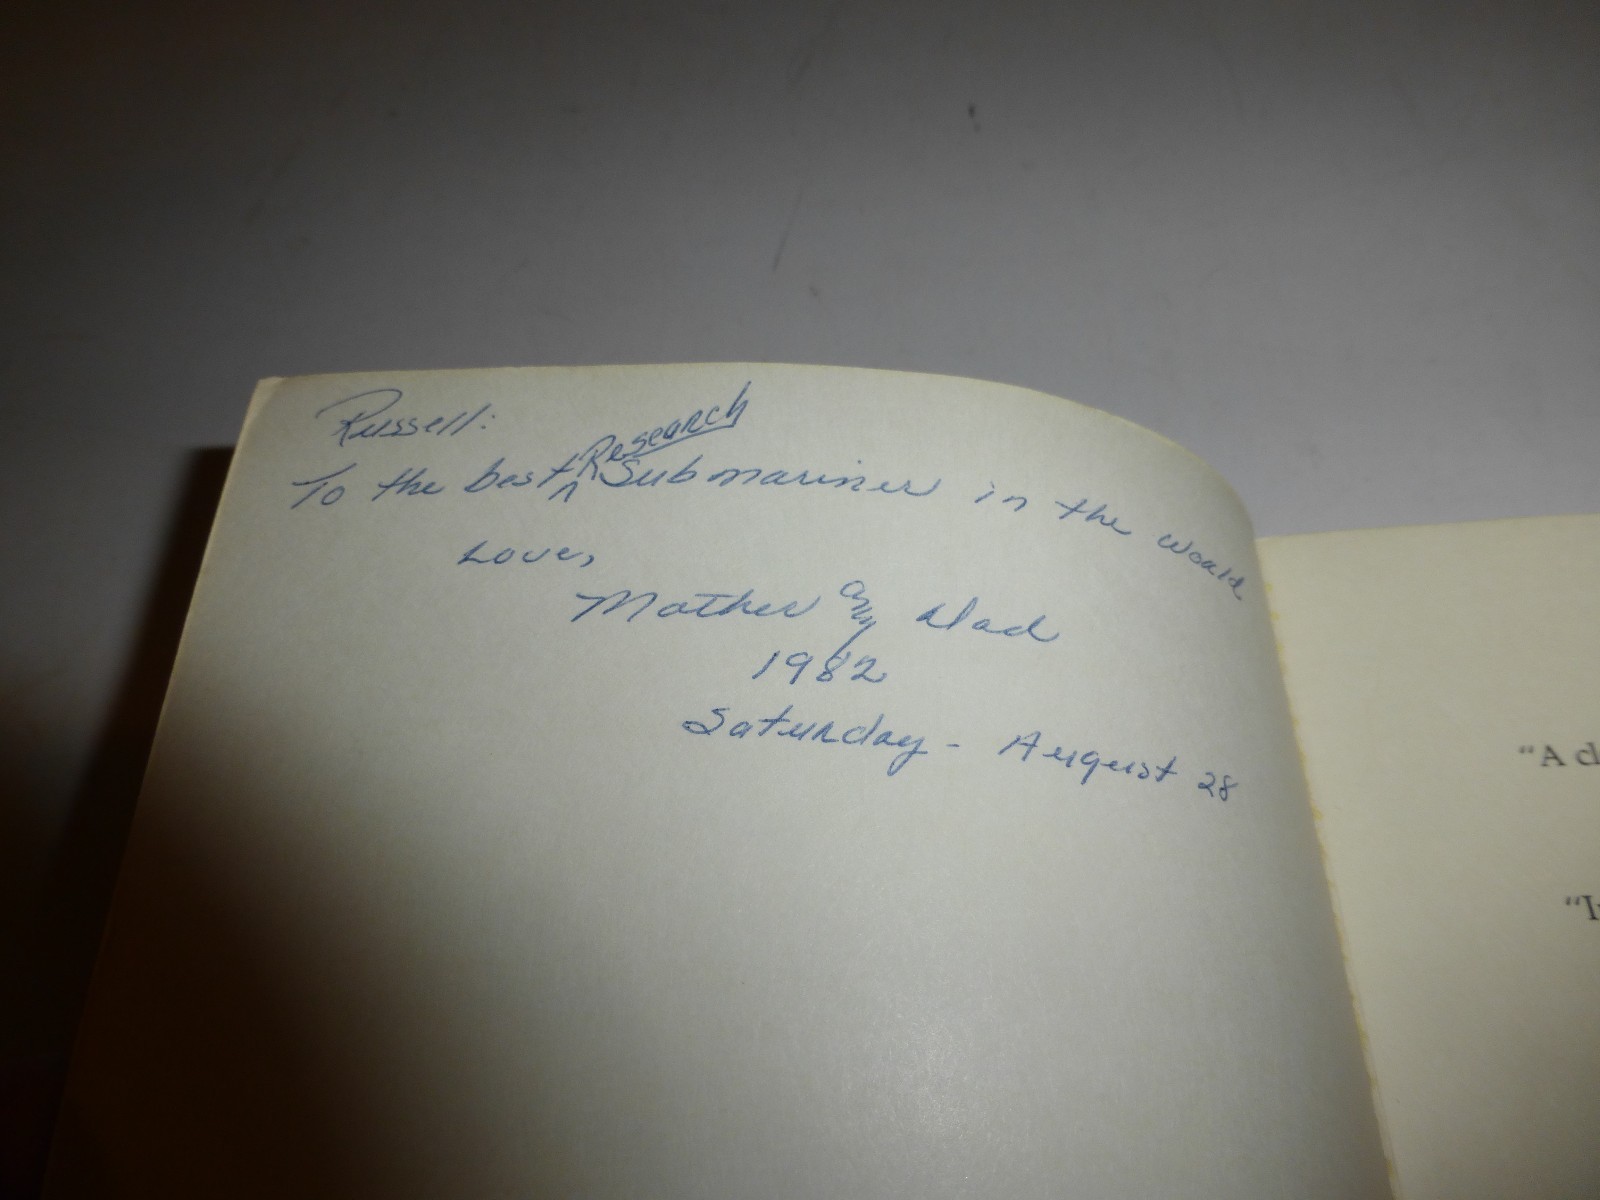 Russell:
To the best ^ Research Submariner in the World
Love,
Mother and Dad
1982
Saturday - August 28
"A cl
"I